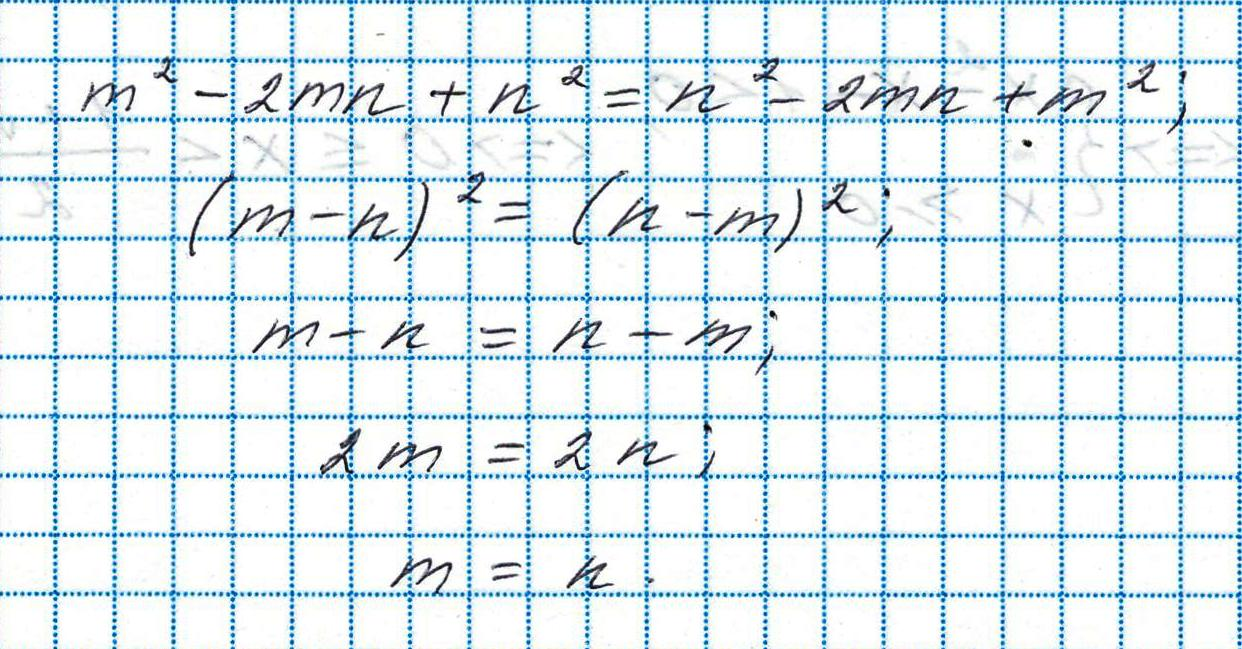 m² - 2mn + n² = n² - 2mn + m²;
(m - n)² = (n - m)²;
m - n = n - m;
2m = 2n;
m = n.